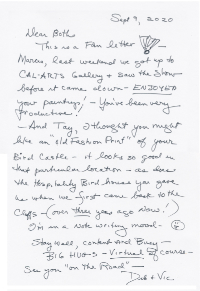 Sept 9, 2020
Dear Both
This is a Fan letter
Marcus, last weekend we got up to
CAL-ARTS Gallery & saw the show
before it came down - ENJOYED
your paintings! - You've been very
productive!
- And Tay, I thought you might
like an "Old Fashion Print" of your
Bird Castle - it looks so good in
that particular location - as does
the Hospitality Bird house you gave
us when we first came back to the
Cliffs - (over three years ago now!)
I'm in a note writing mood -
Stay well, content and Busy -
BIG HUGS - Virtual of course -
See you "on the Road" -
Deb & Vic.